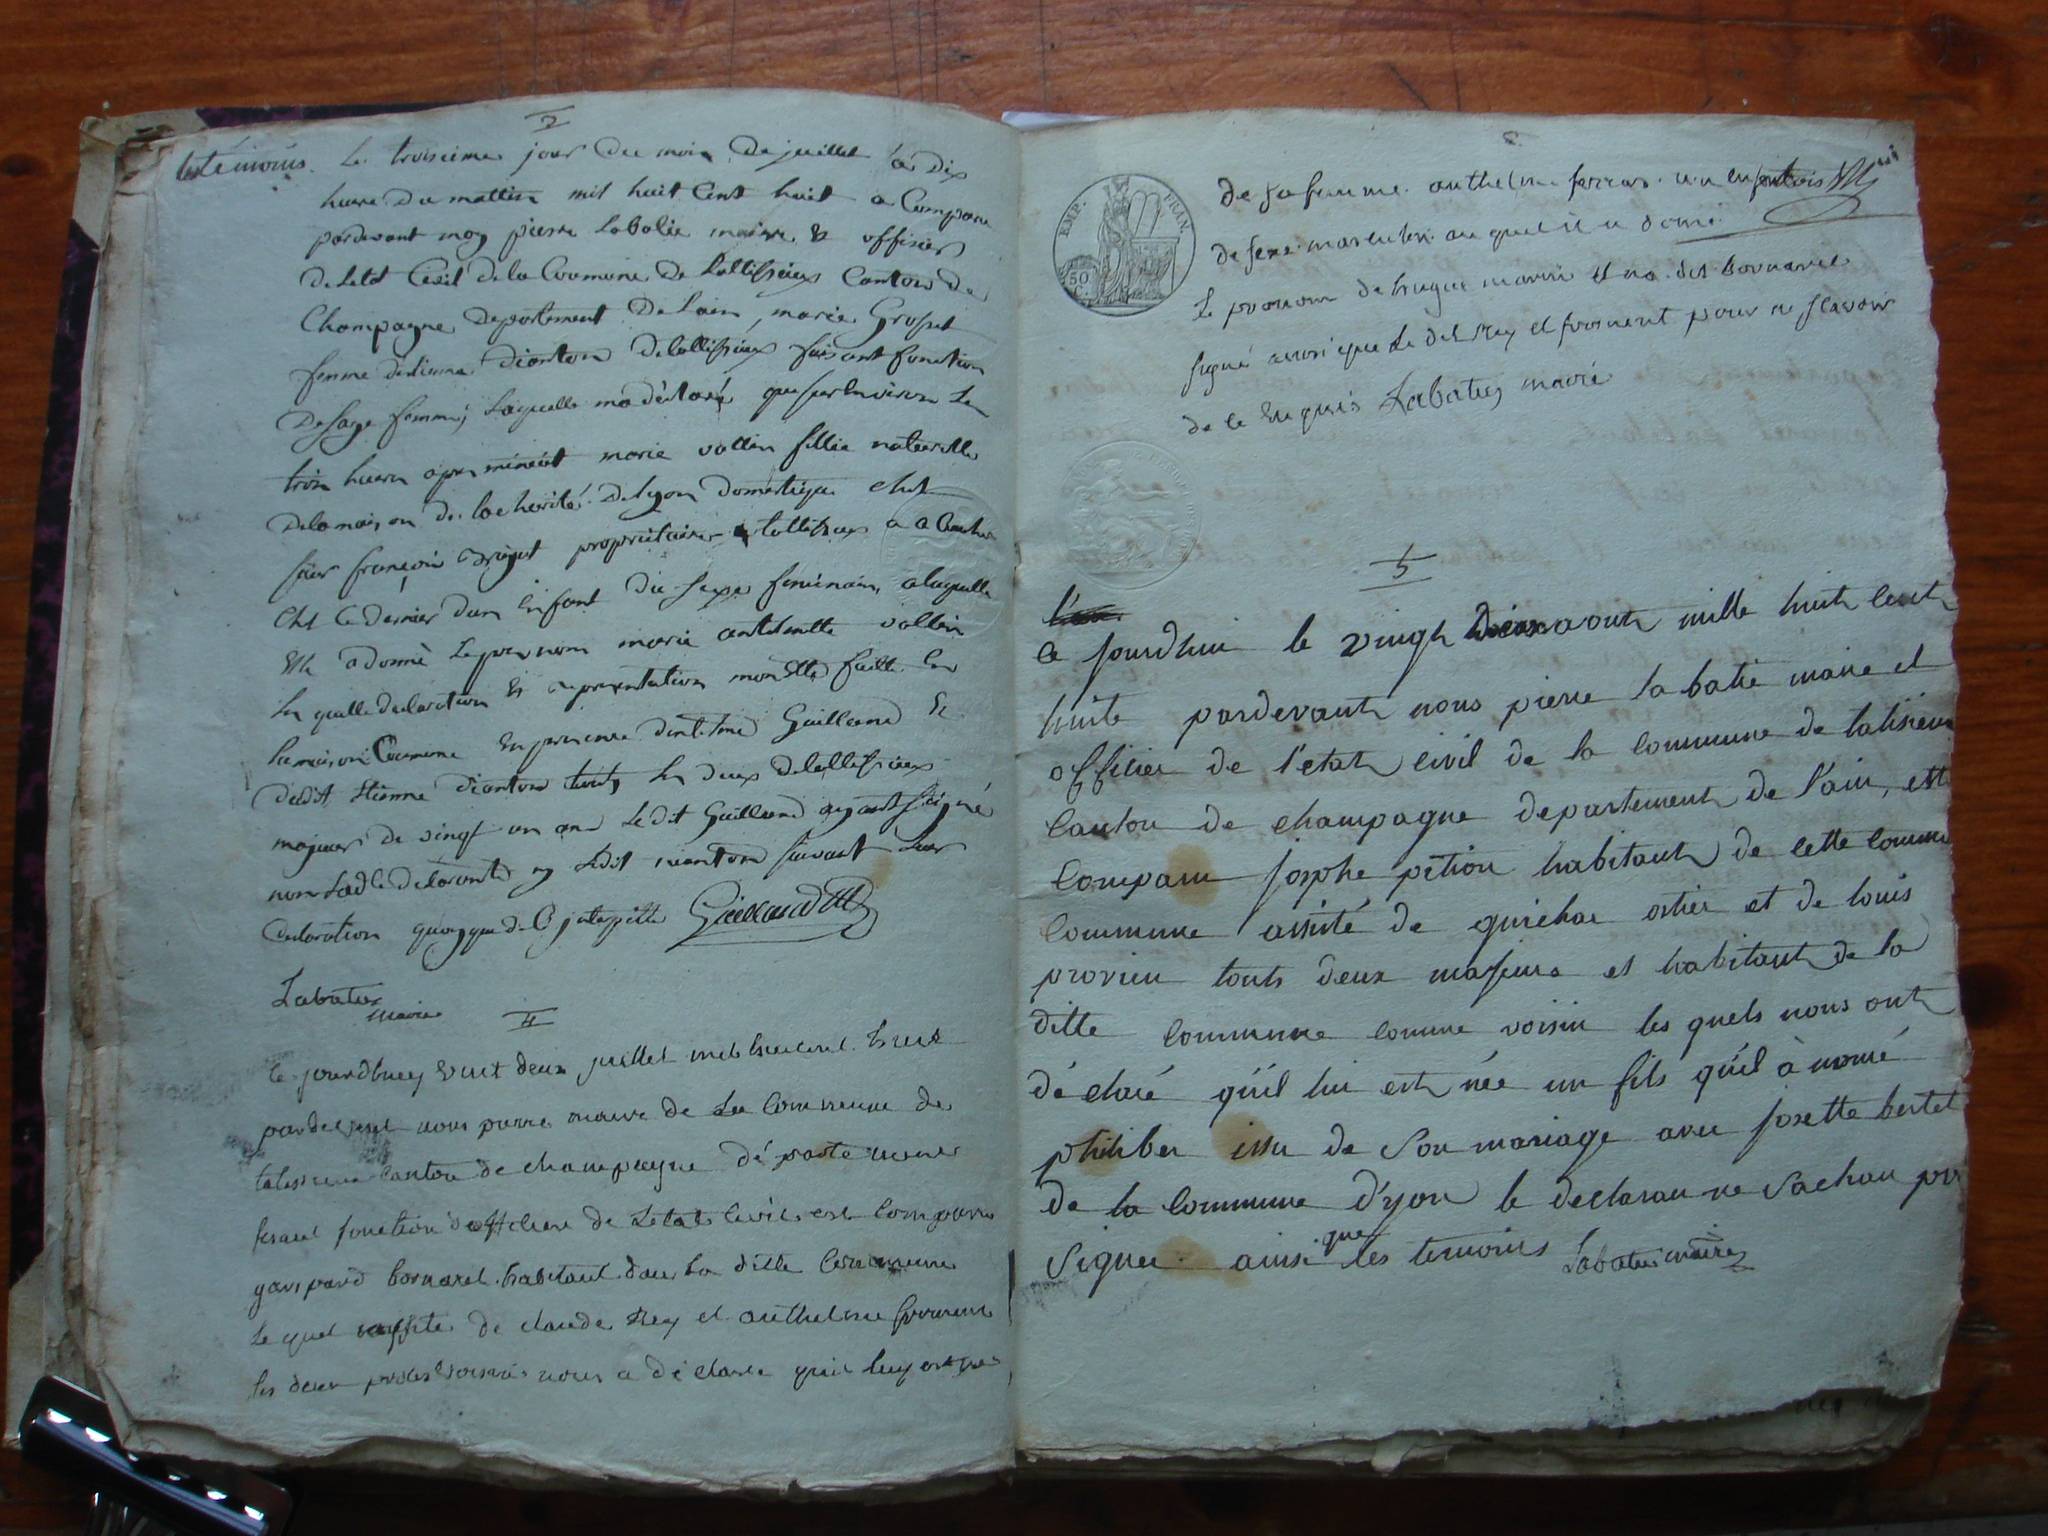 3
Le troisieme jour du mois de juillet à dix
heure du mattin mil huit Cent huit a Compau
pardevant moy pierre Labatie maire & officier
De letat Civil de la Coumune De Tallissieux Canton de
Champagne Departement De Lain, marie Grosset
femme detienne dianton detallissieux faisant fonction
De sage femme, Laquelle ma déclaré, que sur Environ Le
trois heure apres minuit marie vallin fillie naturelle
De la maison de la charité De lyon Domestique chet
sieur françois proprietaire tallissieux a acouchée
Chet Ce dernier dun Enfant du sexe feminain, a laquelle
Elle a donné Le prenom marie vallin
les quelle declaration & representation mon Etté faitte En
la maison Commune En presence dantelme Guilland &
dudit Etienne dianton touts les deux detallissieux
majeurs de vingt un ans Le dit Guilland ayant signé
non Lad.e declarante ny Ledit dianton suivant Leur
declaration quoyque de Ce Guilland
Labatie
maire
4
Ce jourdhuey vint deux juillet mil huit cent huit
pardevent nous pierre maire de La Commune de
talissieux canton de champagne département
fesant fonction dofficiere de Letat Civil est Comparu
gaspard bornarel habitant dans la ditte Commune
Le quel de claude Rey et anthelme froment
les deux voisins nous a déclaré quil luy est né
de sa femme anthelme ferrar un enfent
de sexe masculin au quel il a donné
Le pronom de hugue marin & na. dit bornarel
signé ausi que Le dit Rey et froment pour ne scavoir
de ce Enquis Labatie maire
EMP. FRAN.
50
C.
5
Ce jourdhui le vingt deux aout mille huit Cent
huite pardevant nous pierre la batie maire et
officier de l'etat civil de la Commune de talisieux
Canton de champagne departement de l'ain, est
Comparu josphe pition habitant de cette commu
Commune assisté de ostier et de louis
provien touts deux majeurs et habitant de la
ditte commune comme voisin les quels nous ont
déclaré qu'il lui est née un fils qu'il à nomé
philiber issu de son mariage avec josette bertet
de la Commune d'yon le declarau ne sachau pa
signer ainsi que les temoins Labatie maire